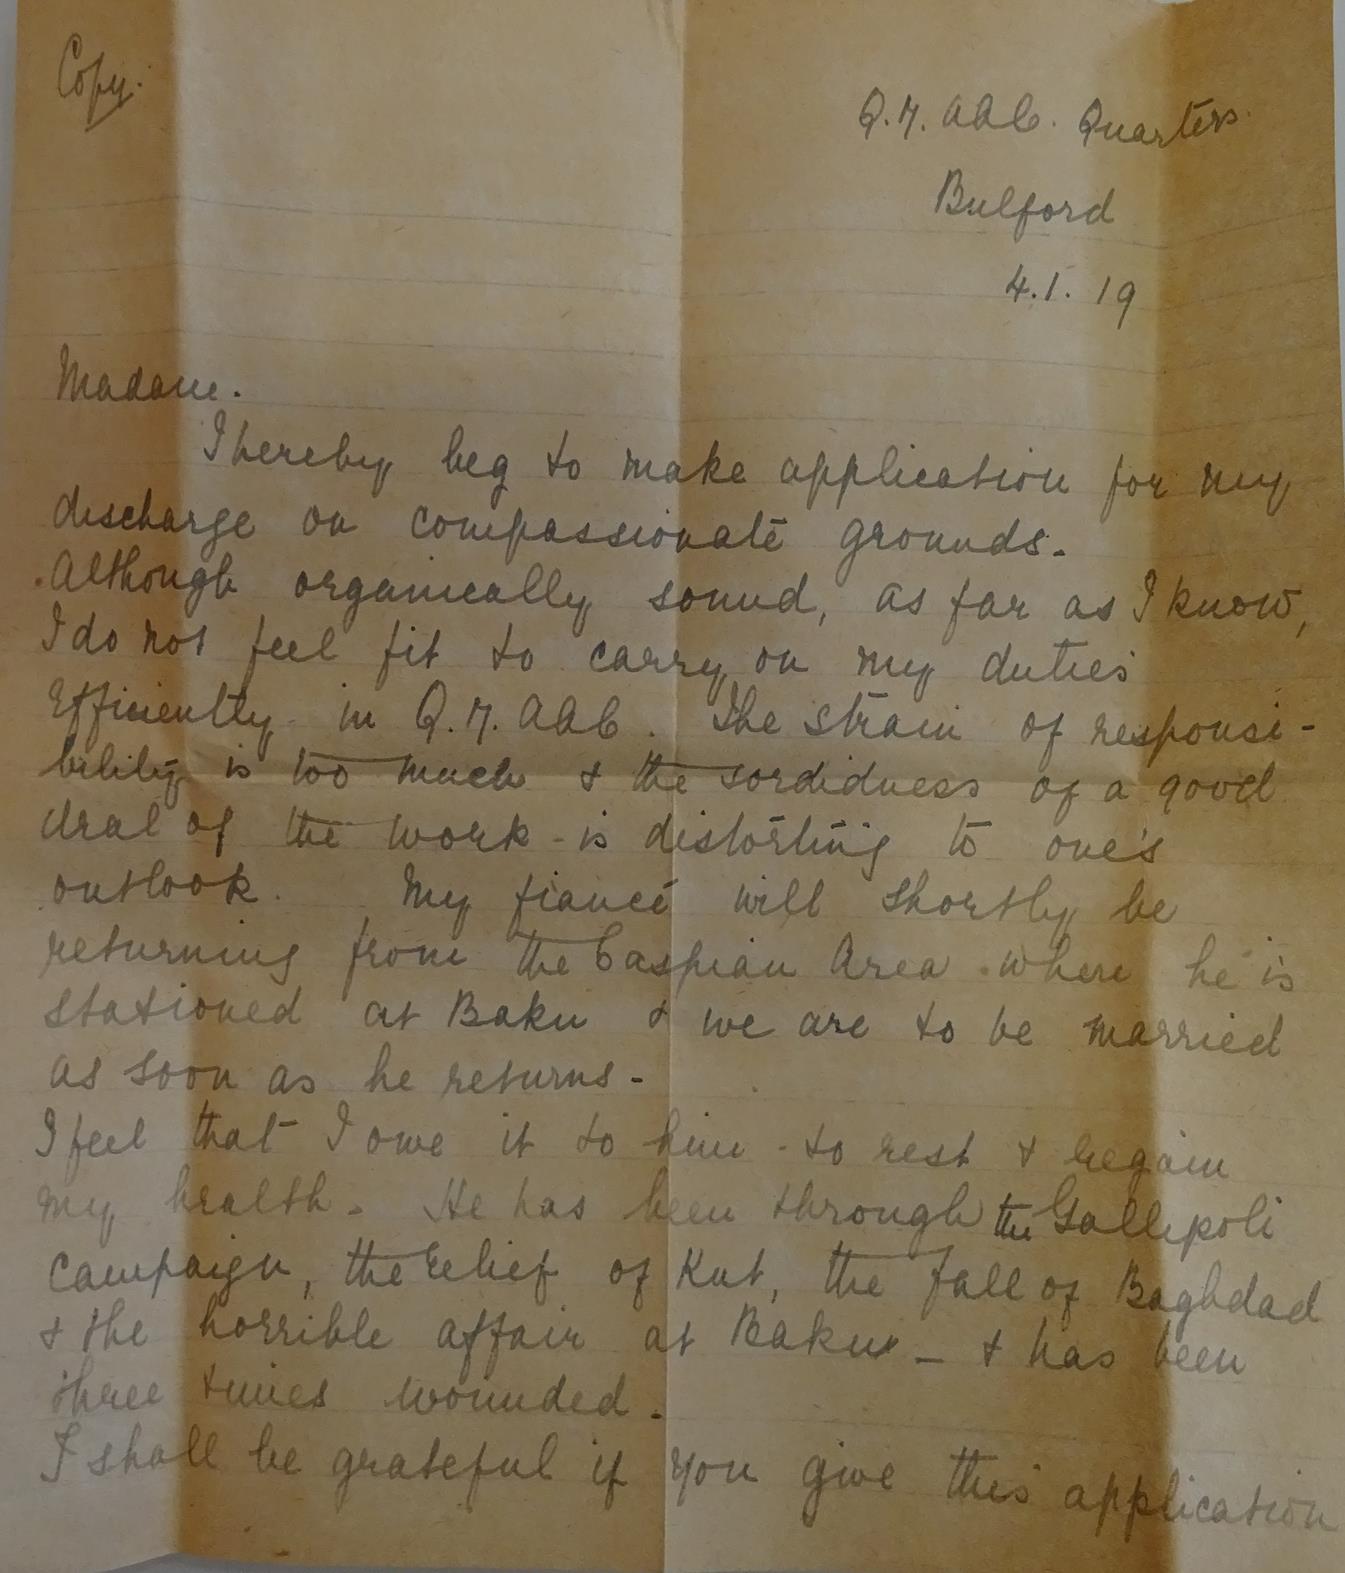 Copy.
Q.M. AAC. Quarters.
Bulford
4.1.19
Madam.
I hereby beg to make application for my
discharge on compassionate grounds.
Although organically sound, as far as I know,
I do not feel fit to carry on my duties
efficiently in Q.M. AAC. The strain of responsi-
bility is too much & the sordidness of a good
deal of the work - is distorting to one's
outlook. My fiancé will shortly be
returning from the Caspian Area where he is
stationed at Baku & we are to be married
as soon as he returns -
I feel that I owe it to him - to rest & regain
my health. He has been through the Gallipoli
Campaign, the relief of Kut, the fall of Baghdad
& the horrible affair at Baku - & has been
three times wounded.
I shall be grateful if you give this application